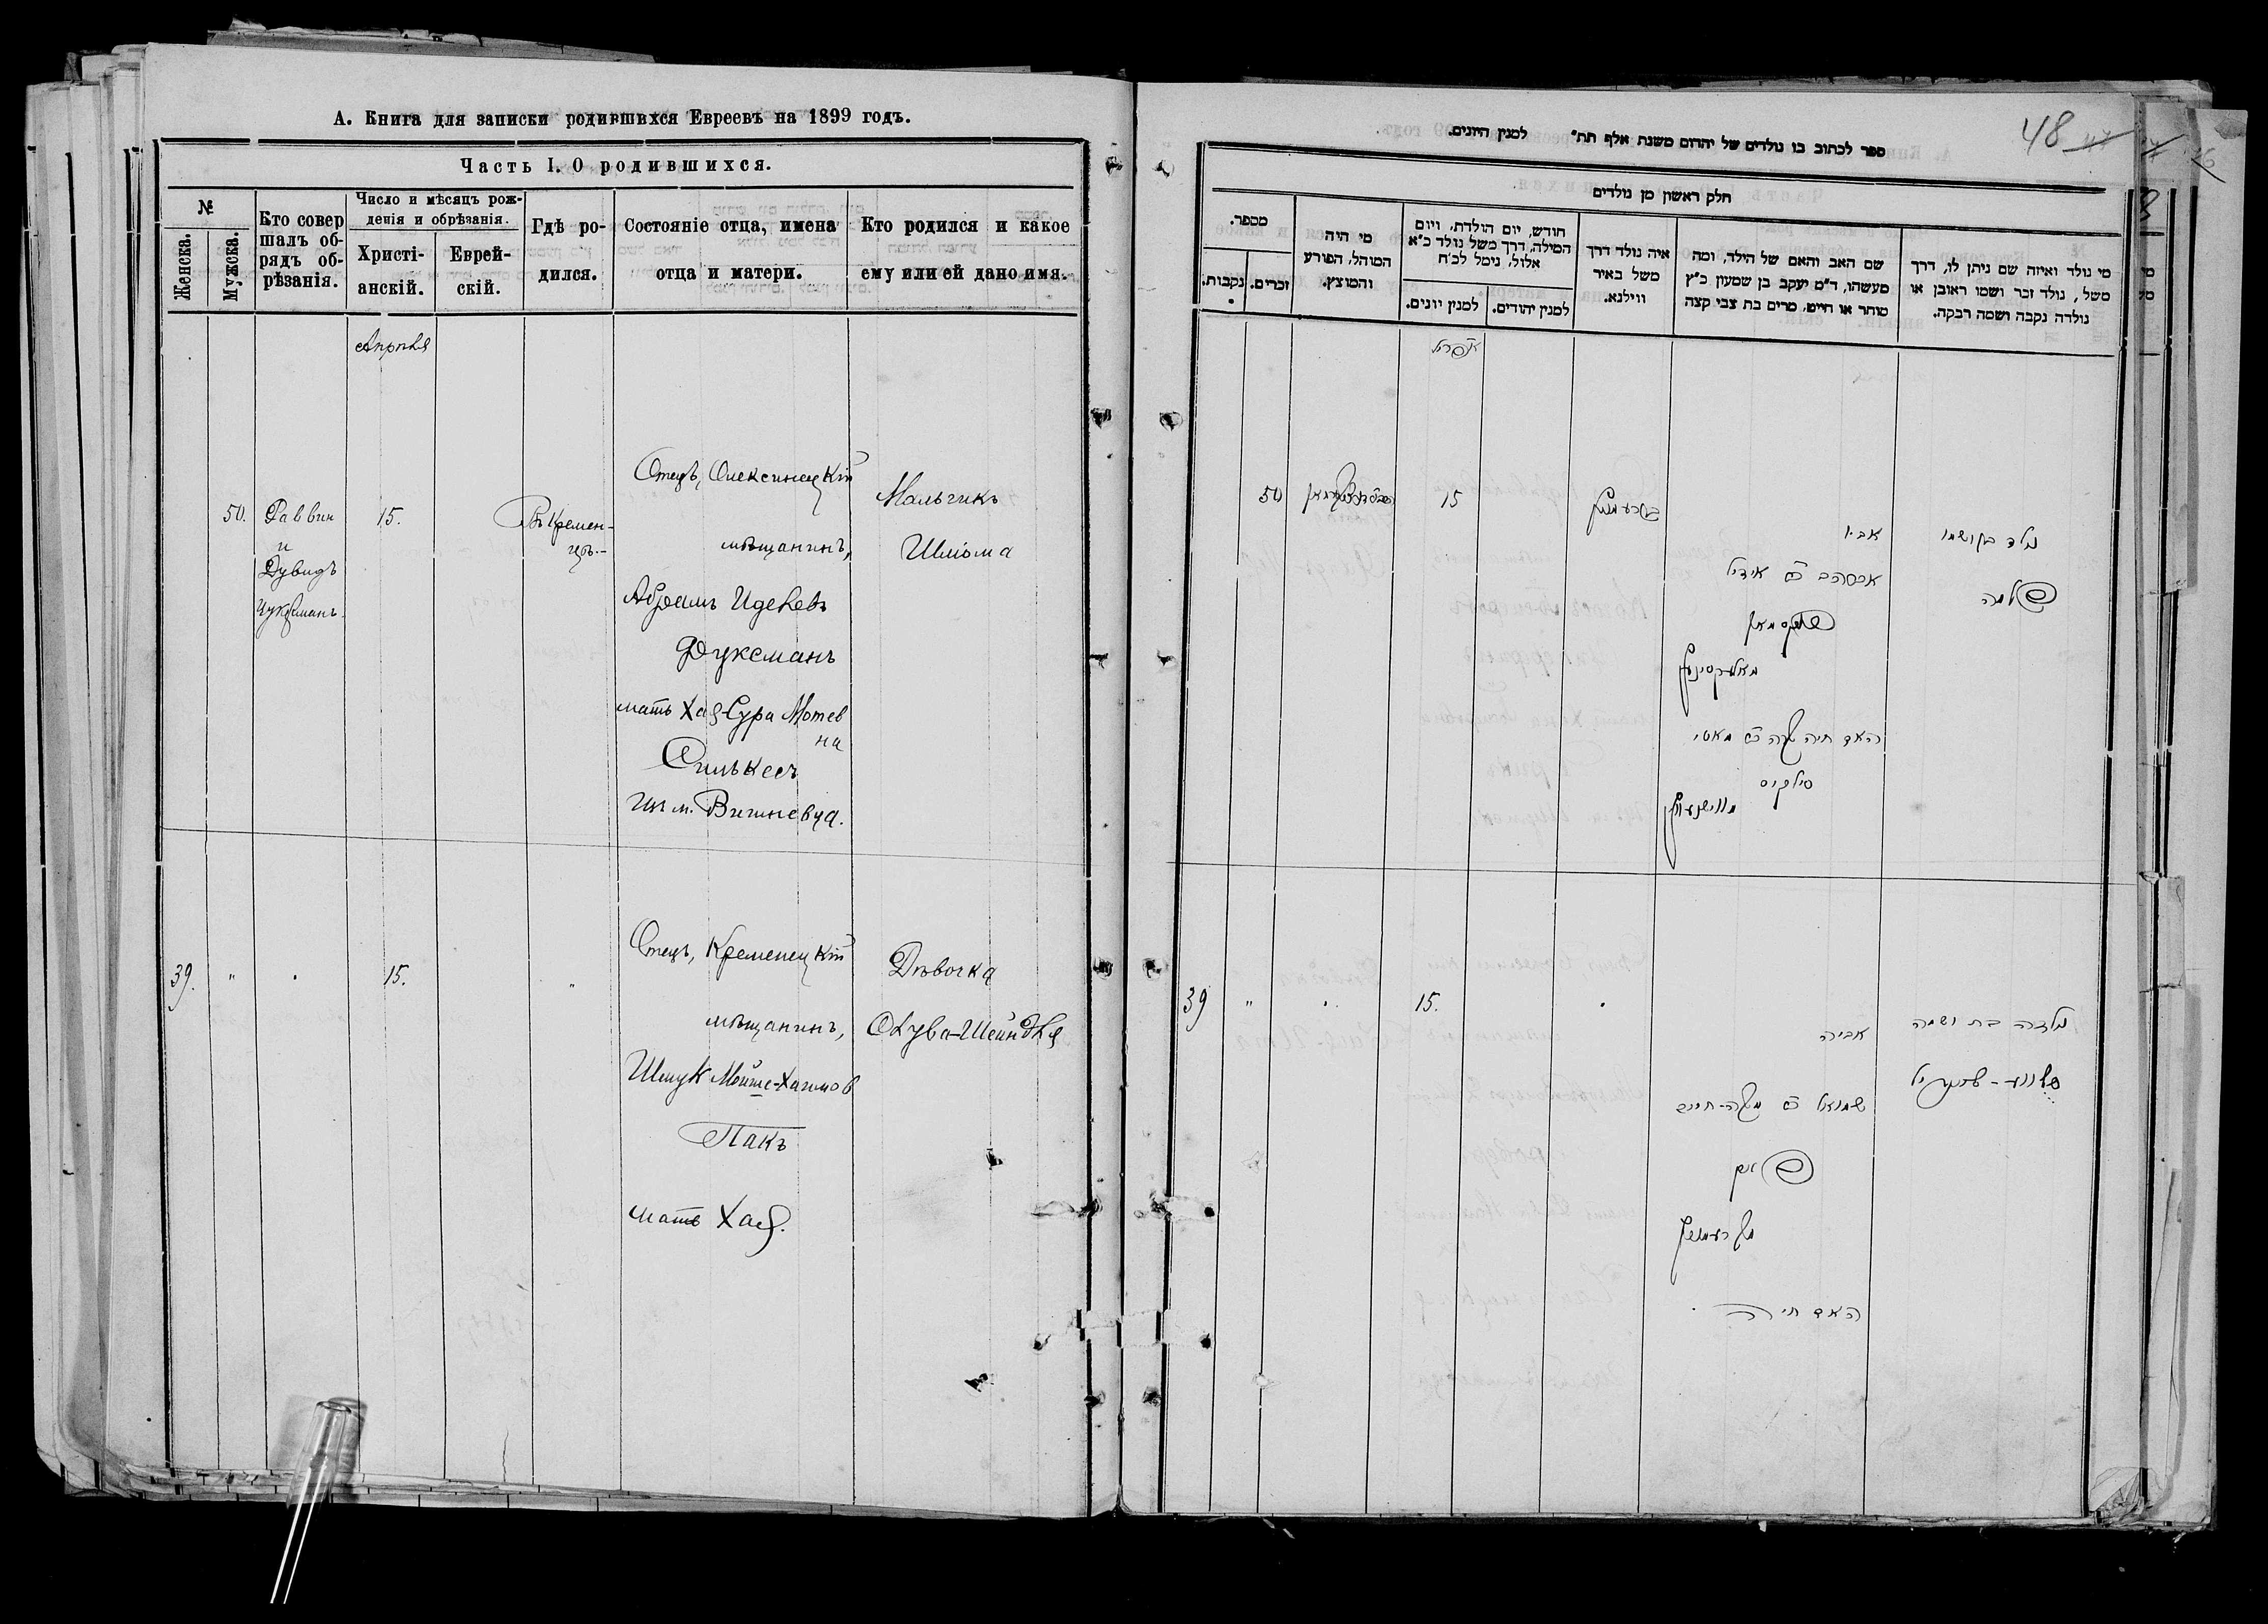 А. Книга для записки родившихся Евреевъ на 1899 годъ.
Часть I. О родившихся.
№
Женска.
Мужска.
Кто совер
шалъ об-
рядъ об-
рѣзанія.
Число и мѣсяцъ рож-
денія и обрѣзанія.
Христі-
анскій.
Еврей-
скій.
Гдѣ ро-
дился.
Состояніе отца, имена
отца и матери.
Кто родился и какое
ему или ей дано имя.
Апрѣля
50.
Раввин
и
Дувидъ
15.
Въ Кремен-
цѣ.-
Отецъ, Олексинецкій
мѣщанинъ,
Абрамъ Иделевъ
Фуксманъ
мать Хая-Сура Мотев
на
Силькесъ
Изъ м. Вишневца.
Мальчикъ
Шлiома
39.
"
"
15.
"
Отецъ, Кременецкій
мѣщанинъ,
Шмук Мойше-Хаимов
Пакъ
мать Хая.
Дѣвочка
Слува-Шейндля
48
ספר לכתוב בו נולדים של יהודים משנת אלף תת״ למנין היונים.
חלק ראשון מן נולדים
מספר.
נקבות.
זכרים.
מי היה
המוהל, הפורע
והמוצץ.
חודש, יום הולדת, ויום
המילה, דרך משל נולד כ״א
אלול, נימל לכ״ח
למנין יונים.
למנין יהודים.
איה נולד דרך
משל באיר
ווילנא.
שם האב והאם של הילד, ומה
מעשהו, ד״מ יעקב בן שמעון כ״ץ
סוחר או חייט, מרים בת צבי קצה
מי נולד ואיזה שם ניתן לו, דרך
משל, נולד זכר ושמו ראובן או
נולדה נקבה ושמה רבקה.
אפריל
50
15
אביו
אברהם ב״ר אידיל
פוקסמאן
מאלעקסיניץ
האם חיה שרה ב״ר מאטי
סילקיס
מווישניוויץ
נולד בן ושמו
שלמה
39
"
"
15.
"
אביה
שמואל ב״ר משה-חיים
פאק
מקרעמניץ
האם חיה
נולדה בת ושמה
סלווע-שיינדיל